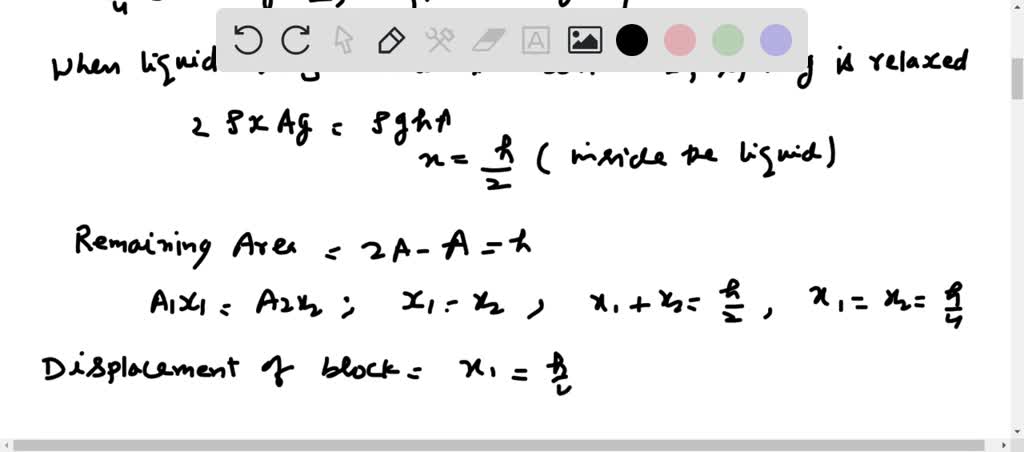 4
When liquid is relaxed
2 ρxAg = ρghA
x = h/2 (inside the liquid)
Remaining Area = 2A - A = h
A1x1 = A2x2 ; x1 = x2 , x1 + x2 = h/2 , x1 = x2 = h/4
Displacement of block = x1 = h/4